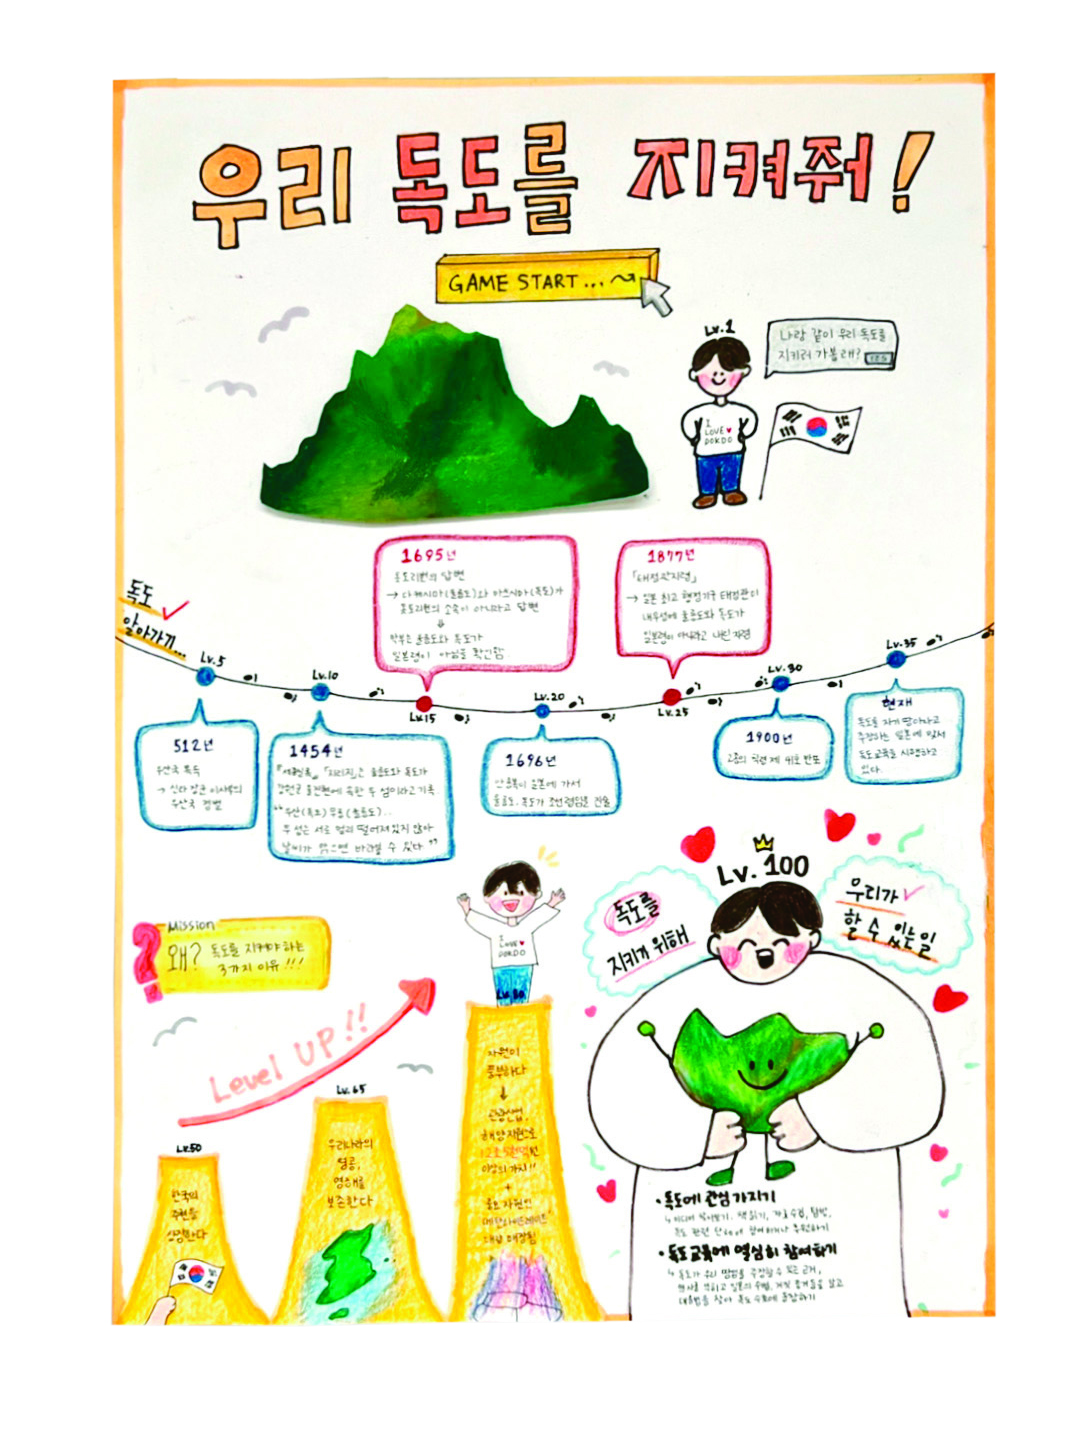 우리 독도를 지켜줘!
GAME START...
Lv.1
나랑 같이 우리 독도를
지키러 가볼래? YES
I
LOVE
DOKDO
독도
알아가기...
1695년
돗토리번의 답변
→ 다케시마(울릉도)와 마쓰시마(독도)가
돗토리번의 소속이 아니라고 답변
막부는 울릉도와 독도가
일본령이 아님을 확인함.
1877년
「태정관지령」
→ 일본 최고 행정기국 태정관이
내무성에 울릉도와 독도가
일본령이 아니라고 내린 지령
Lv.5
Lv.10
Lv.15
Lv.20
Lv.25
Lv.30
Lv.35
512년
우산국 복속
→ 신라 장군 이사부의
우산국 정벌
1454년
「지리지」는 울릉도와 독도가
강원도 울진현에 속한 두 섬이라고 기록.
"우산(독도) 무릉(울릉도)..
두 섬은 서로 멀리 떨어져 있지 않아
날씨가 맑으면 바라볼 수 있다"
1696년
안용복이 일본에 가서
울릉도, 독도가 조선령임을
1900년
고종의 칙령 제 41호 반포
현재
독도를 자기 땅이라고
주장하는 일본에 맞서
독도교육을 시행하고
있다.
Mission
왜? 독도를 지켜야 하는
3가지 이유!!!
Level UP!!
Lv.50
한국의
주권을
상징한다
Lv.65
우리나라의
영공,
영해를
보존한다
I
LOVE
DOKDO
Lv.80
자원이
풍부하다
↓
관광산업,
해양자원으로
12조 5천억원
이상의 가치!!
+
대량 매장됨
Lv. 100
독도를
지키기 위해
우리가
할 수 있는 일
• 독도에 관심 가지기
독도 관련 단체에 참여하거나 후원하기
• 독도교육에 열심히 참여하기
↳ 독도가 우리 땅임을 주장할 수 있는 근거,